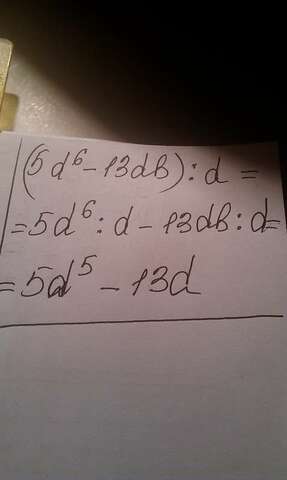 (5d⁶-13db):d=
=5d⁶:d-13db:d=
=5d⁵-13d